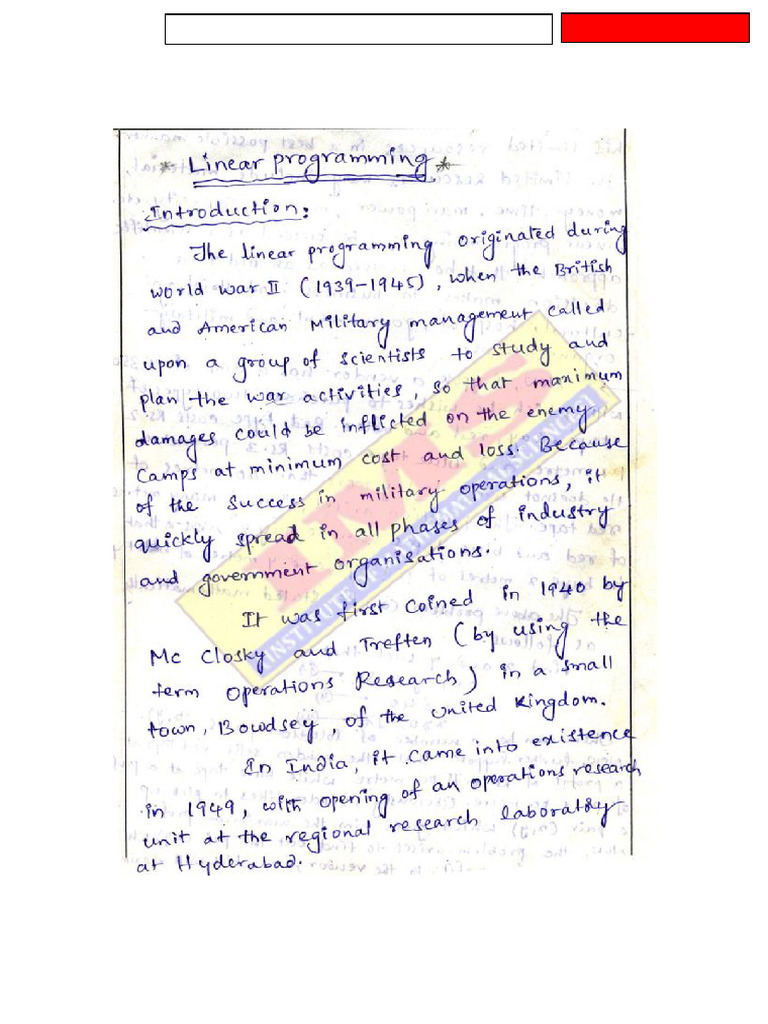 * Linear programming *
Introduction:
The linear programming originated during
world war II (1939-1945), when the British
and American Military management called
upon a group of scientists to study and
plan the war activities, so that maximum
damages could be inflicted on the enemy
camps at minimum cost and loss. Because
of the success in military operations, it
quickly spread in all phases of industry
and government organisations.
It was first coined in 1940 by
Mc Closky and Treften (by using the
term Operations Research) in a small
town, Bowdsey, of the United Kingdom.
In India, it came into existence
in 1949, with opening of an operations research
unit at the regional research laboratory
at Hyderabad.
IMS